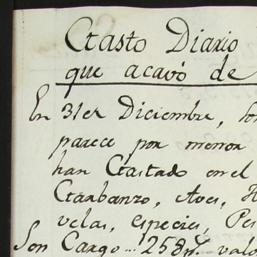 Gasto Diario
que acavó de
En 31 er Diciembre,
parece por menor
han Gastado en el
Garbanzo, Aves, H
velas, especies, Pes
Son Cargo... 258